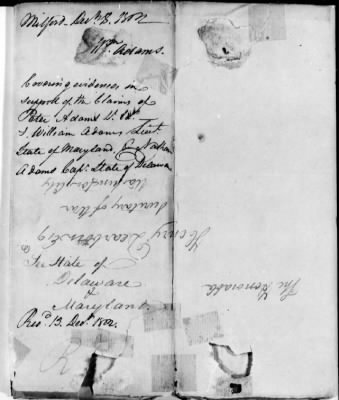 Milford Decr 8. 1802
Wm Adams.
Covering evidences in
support of the Claims of
Peter Adams Lt. Col.
& William Adams Lieut.
State of Maryland, & Nathan
Adams Capt. State of Delaware
See State of
Delaware
&
Maryland
Recd. 13. Decr. 1802.
The Honorable
Henry Dearborn Esq
Secretary of War
Washington City